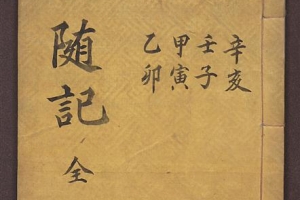 辛亥
壬子
甲寅
乙卯
随記
全